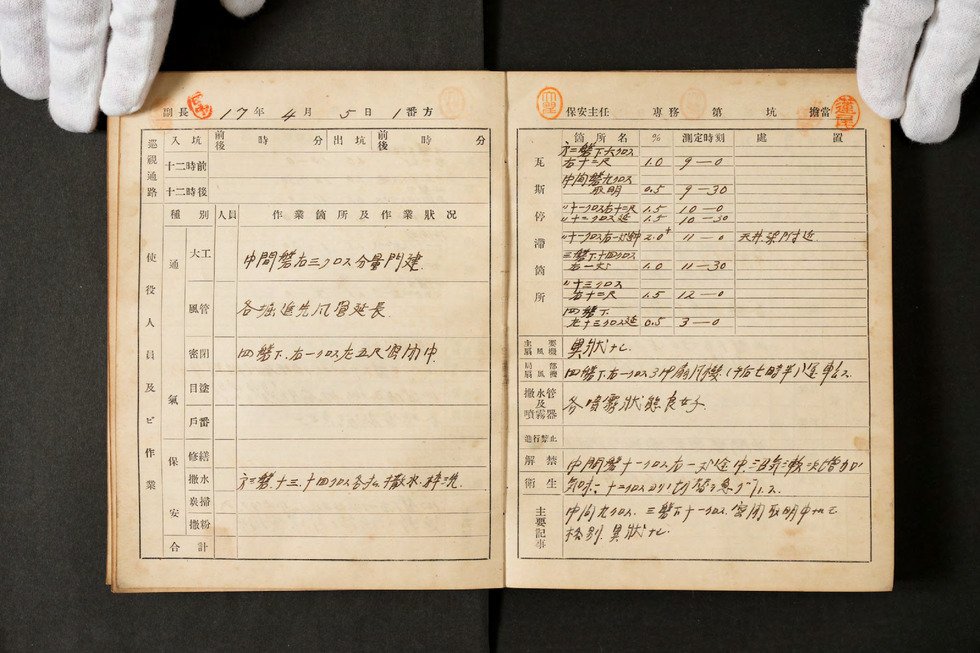 副長 17年 4月 5日 1番方
巡視通路 入坑 前後 時 分 出坑 前後 時 分
十二時前
十二時後
使役人員及ビ作業 種別 人員 作業箇所及作業狀况
通氣 大工 中間磐右三クロス分量門建
風管 各掘進先風管延長
密閉 四磐下、右一クロス左五尺密閉中
目塗
戶番
保安 修繕
撒水 方三磐、十三、十四クロス各払撒水、枠洗
炭掃
撒粉
合計
保安主任 専務 第 坑 擔當 蓮尾
瓦斯停滯箇所 箇所名 % 測定時刻 處置
方三磐下六クロス
右十三尺 1.0 9―0
中間磐九クロス
取明 0.5 9―30
〃十一クロス右十三尺 1.5 10―0
〃十二クロス延 1.5 10―30
〃十一クロス右一 2.0+ 11―0 天井梁附近
三磐下十四クロス
右一 1.0 11―30
〃十三クロス
右十三尺 1.5 12―0
四磐下
左十三クロス延 0.5 3―0
主要扇風機 異狀ナシ
局部扇風機 四磐下右一クロス3HP扇風機、午后七時半ヨリ運車ス
撒水管及噴霧器 各噴霧狀態良好
進行禁止
解禁
衛生 中間磐十一クロス右一 途中、沼気漸次増加
気味ニ十二クロスヨリ切替ヲ急グ
主要記事 中間九クロス、三磐下十一クロス、密閉取明中ナルモ
格別異狀ナシ